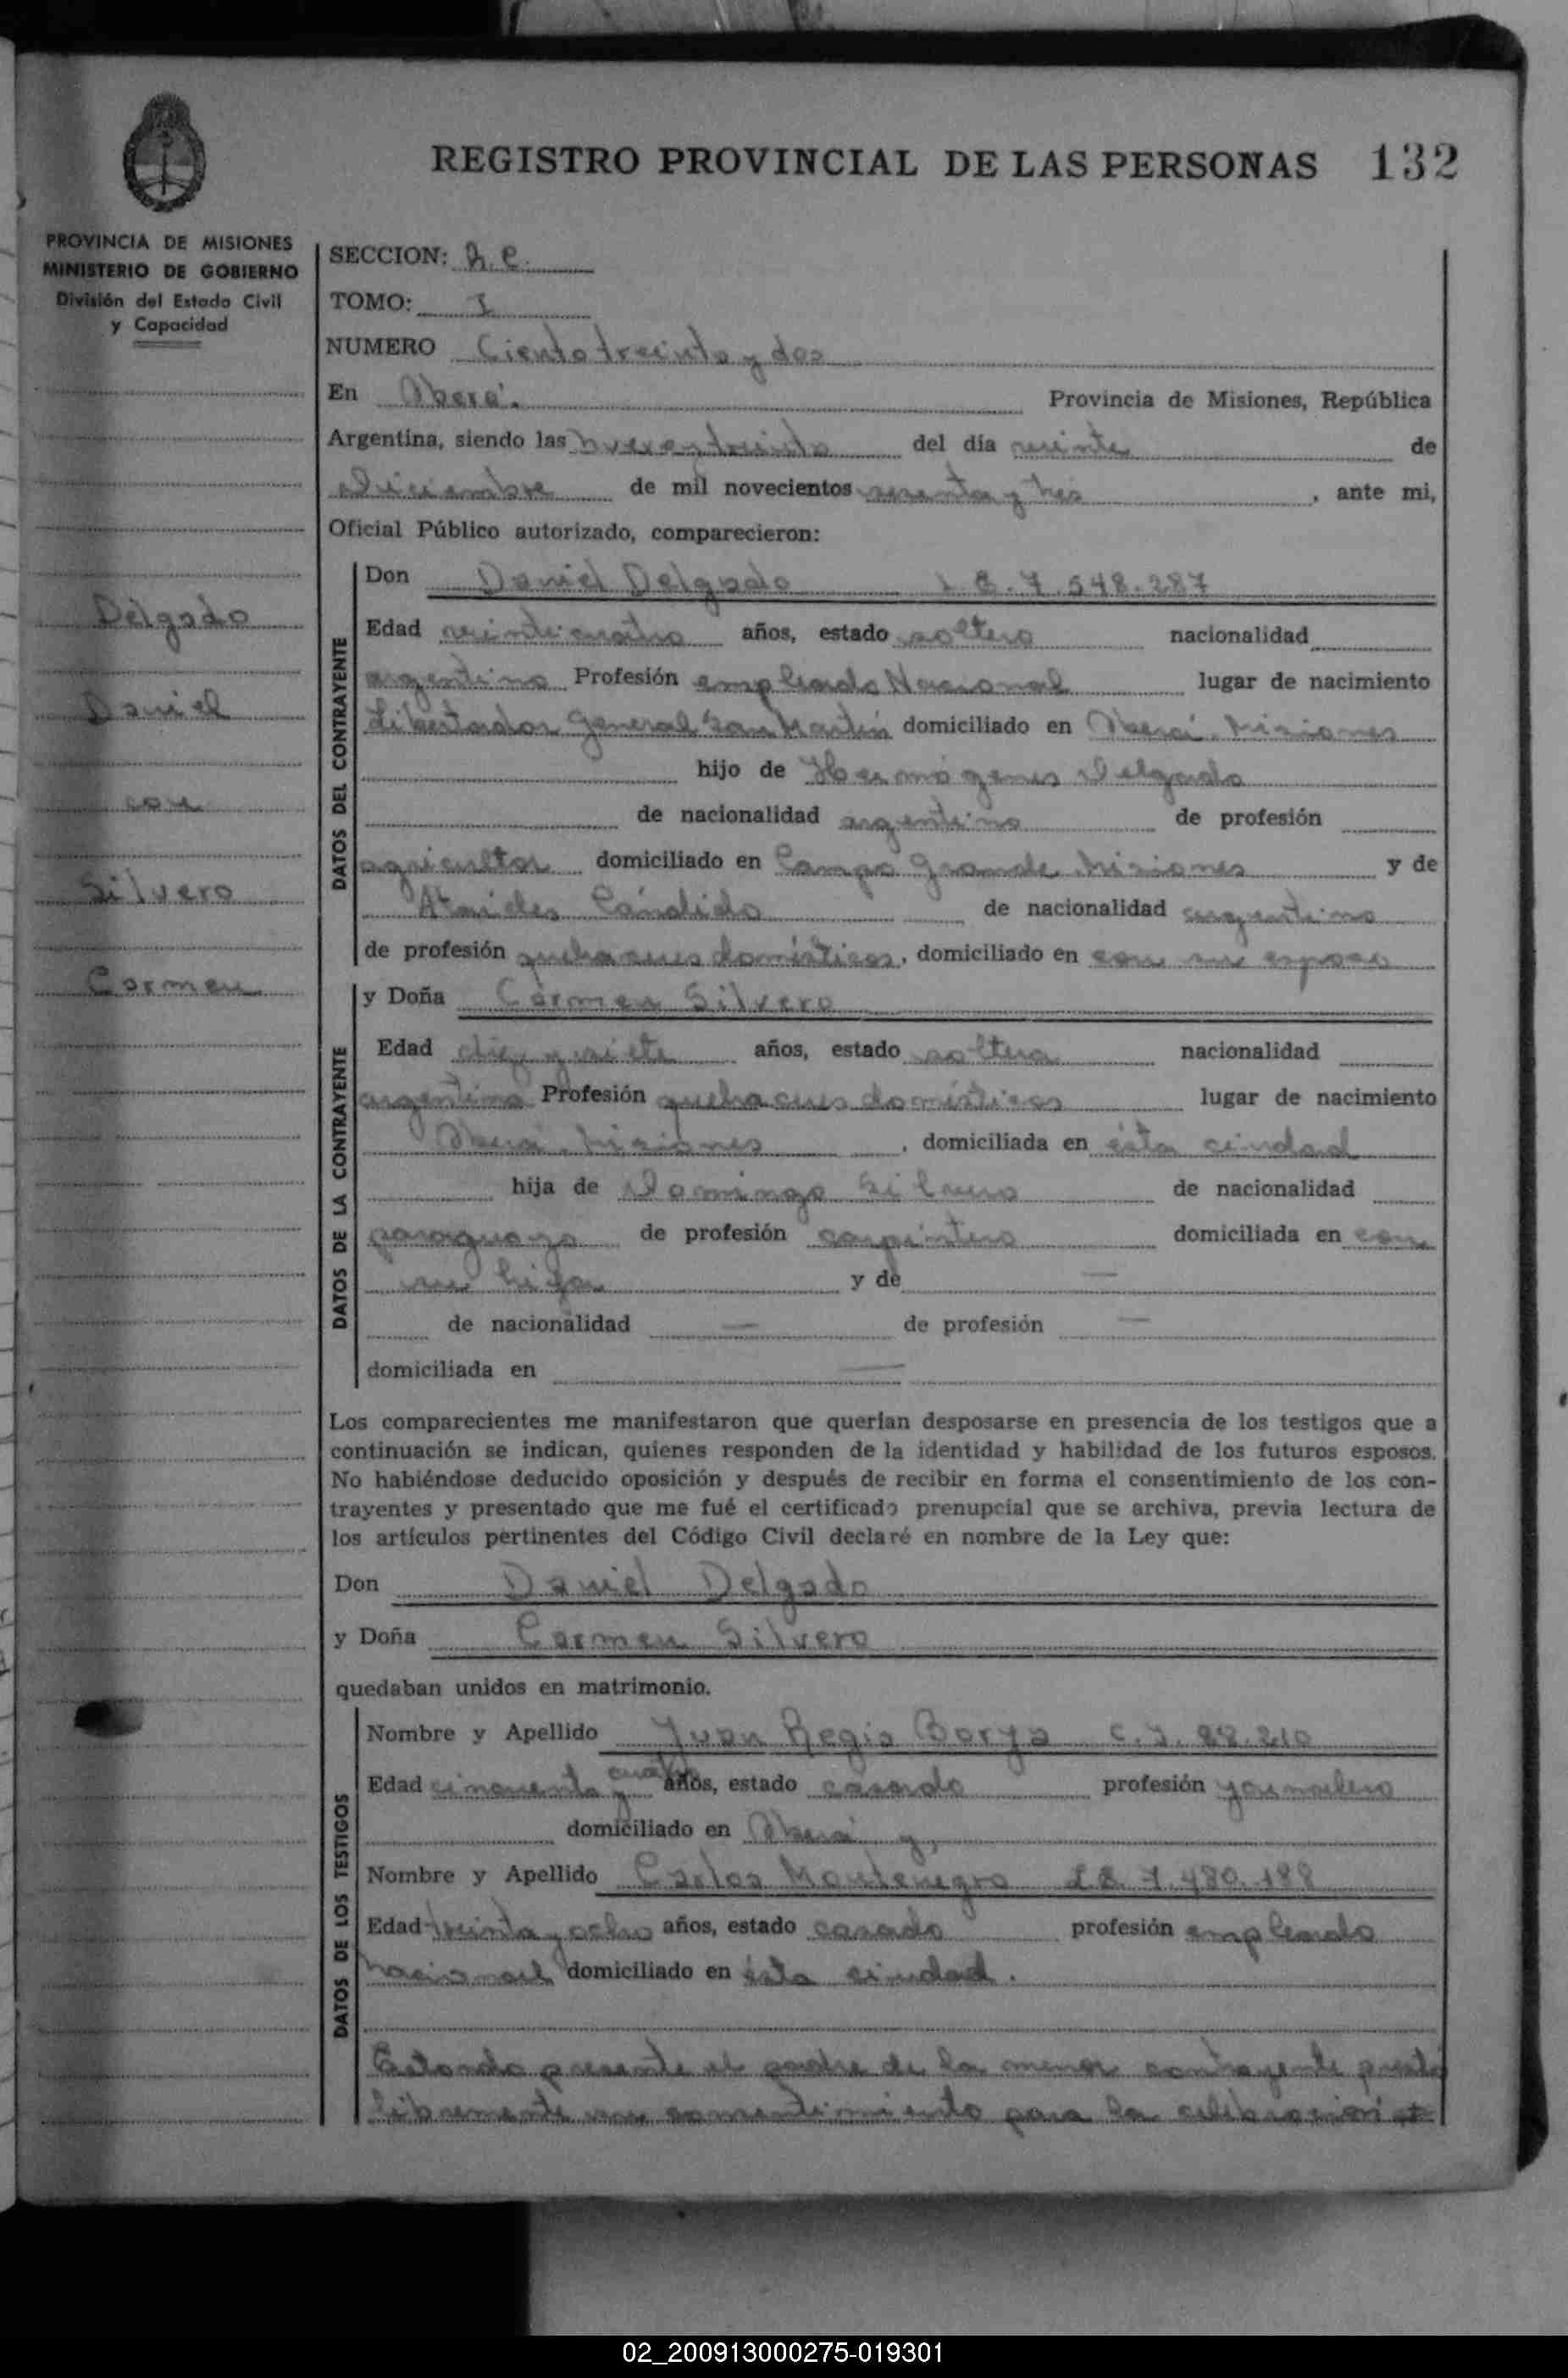 REGISTRO PROVINCIAL DE LAS PERSONAS 132
PROVINCIA DE MISIONES
MINISTERIO DE GOBIERNO
División del Estado Civil
y Capacidad
Delgado
Daniel
con
Silvero
Carmen
SECCION: R.C.
TOMO: I
NUMERO Ciento treinta y dos
En Oberá. Provincia de Misiones, República
Argentina, siendo las nueve y treinta del día veinte de
Diciembre de mil novecientos sesenta y tres, ante mi,
Oficial Público autorizado, comparecieron:
DATOS DEL CONTRAYENTE
Don Daniel Delgado L E. 7.548.287
Edad veinticuatro años, estado soltero nacionalidad
argentino Profesión empleado Nacional lugar de nacimiento
Libertador General San Martín domiciliado en Oberá Misiones
hijo de Hermógenes Delgado
de nacionalidad argentino de profesión
agricultor domiciliado en Campo Grande, Misiones y de
Ataides Cándido de nacionalidad argentina
de profesión quehaceres domésticos, domiciliado en con su esposo
DATOS DE LA CONTRAYENTE
y Doña Cármen Silvero
Edad diez y siete años, estado soltera nacionalidad
argentina Profesión quehaceres domésticos lugar de nacimiento
Oberá, Misiones, domiciliada en ésta ciudad
hija de Domingo Silvero de nacionalidad
paraguayo de profesión carpintero domiciliada en con
su hija y de —
de nacionalidad — de profesión —
domiciliada en —
Los comparecientes me manifestaron que querían desposarse en presencia de los testigos que a
continuación se indican, quienes responden de la identidad y habilidad de los futuros esposos.
No habiéndose deducido oposición y después de recibir en forma el consentimiento de los con-
trayentes y presentado que me fué el certificado prenupcial que se archiva, previa lectura de
los artículos pertinentes del Código Civil declaré en nombre de la Ley que:
Don Daniel Delgado
y Doña Carmen Silvero
quedaban unidos en matrimonio.
DATOS DE LOS TESTIGOS
Nombre y Apellido Juan Regis Borja C. I. 22.210
Edad cincuenta y cuatro años, estado casado profesión jornalero
domiciliado en Oberá y,
Nombre y Apellido Carlos Montenegro L E. 7.480.188
Edad treinta y ocho años, estado casado profesión empleado
nacional domiciliado en ésta ciudad.
Estando presente el padre de la menor contrayente prestó
libremente su consentimiento para la celebración
02_200913000275-019301